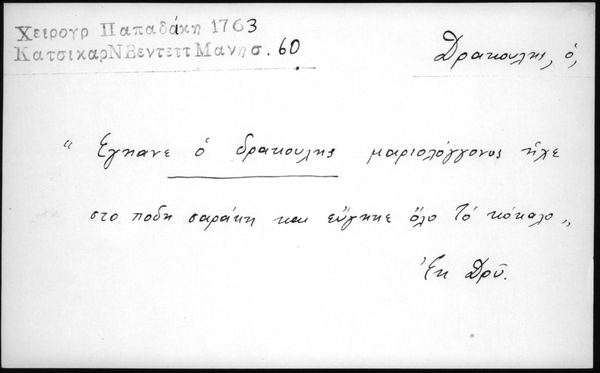 Χειρογρ Παπαδάκη 1763
ΚατσικαρΝΒεντεττΜανησ. 60
Δρακουλης, ὁ,
" Ἐγηανε ὁ δρακουλης μαριολόγγονος ἤχε
στο ποδη σαράκη και εὔγηκε ὅλο τό κόκαλο "
Ἐκ Δρῦ.